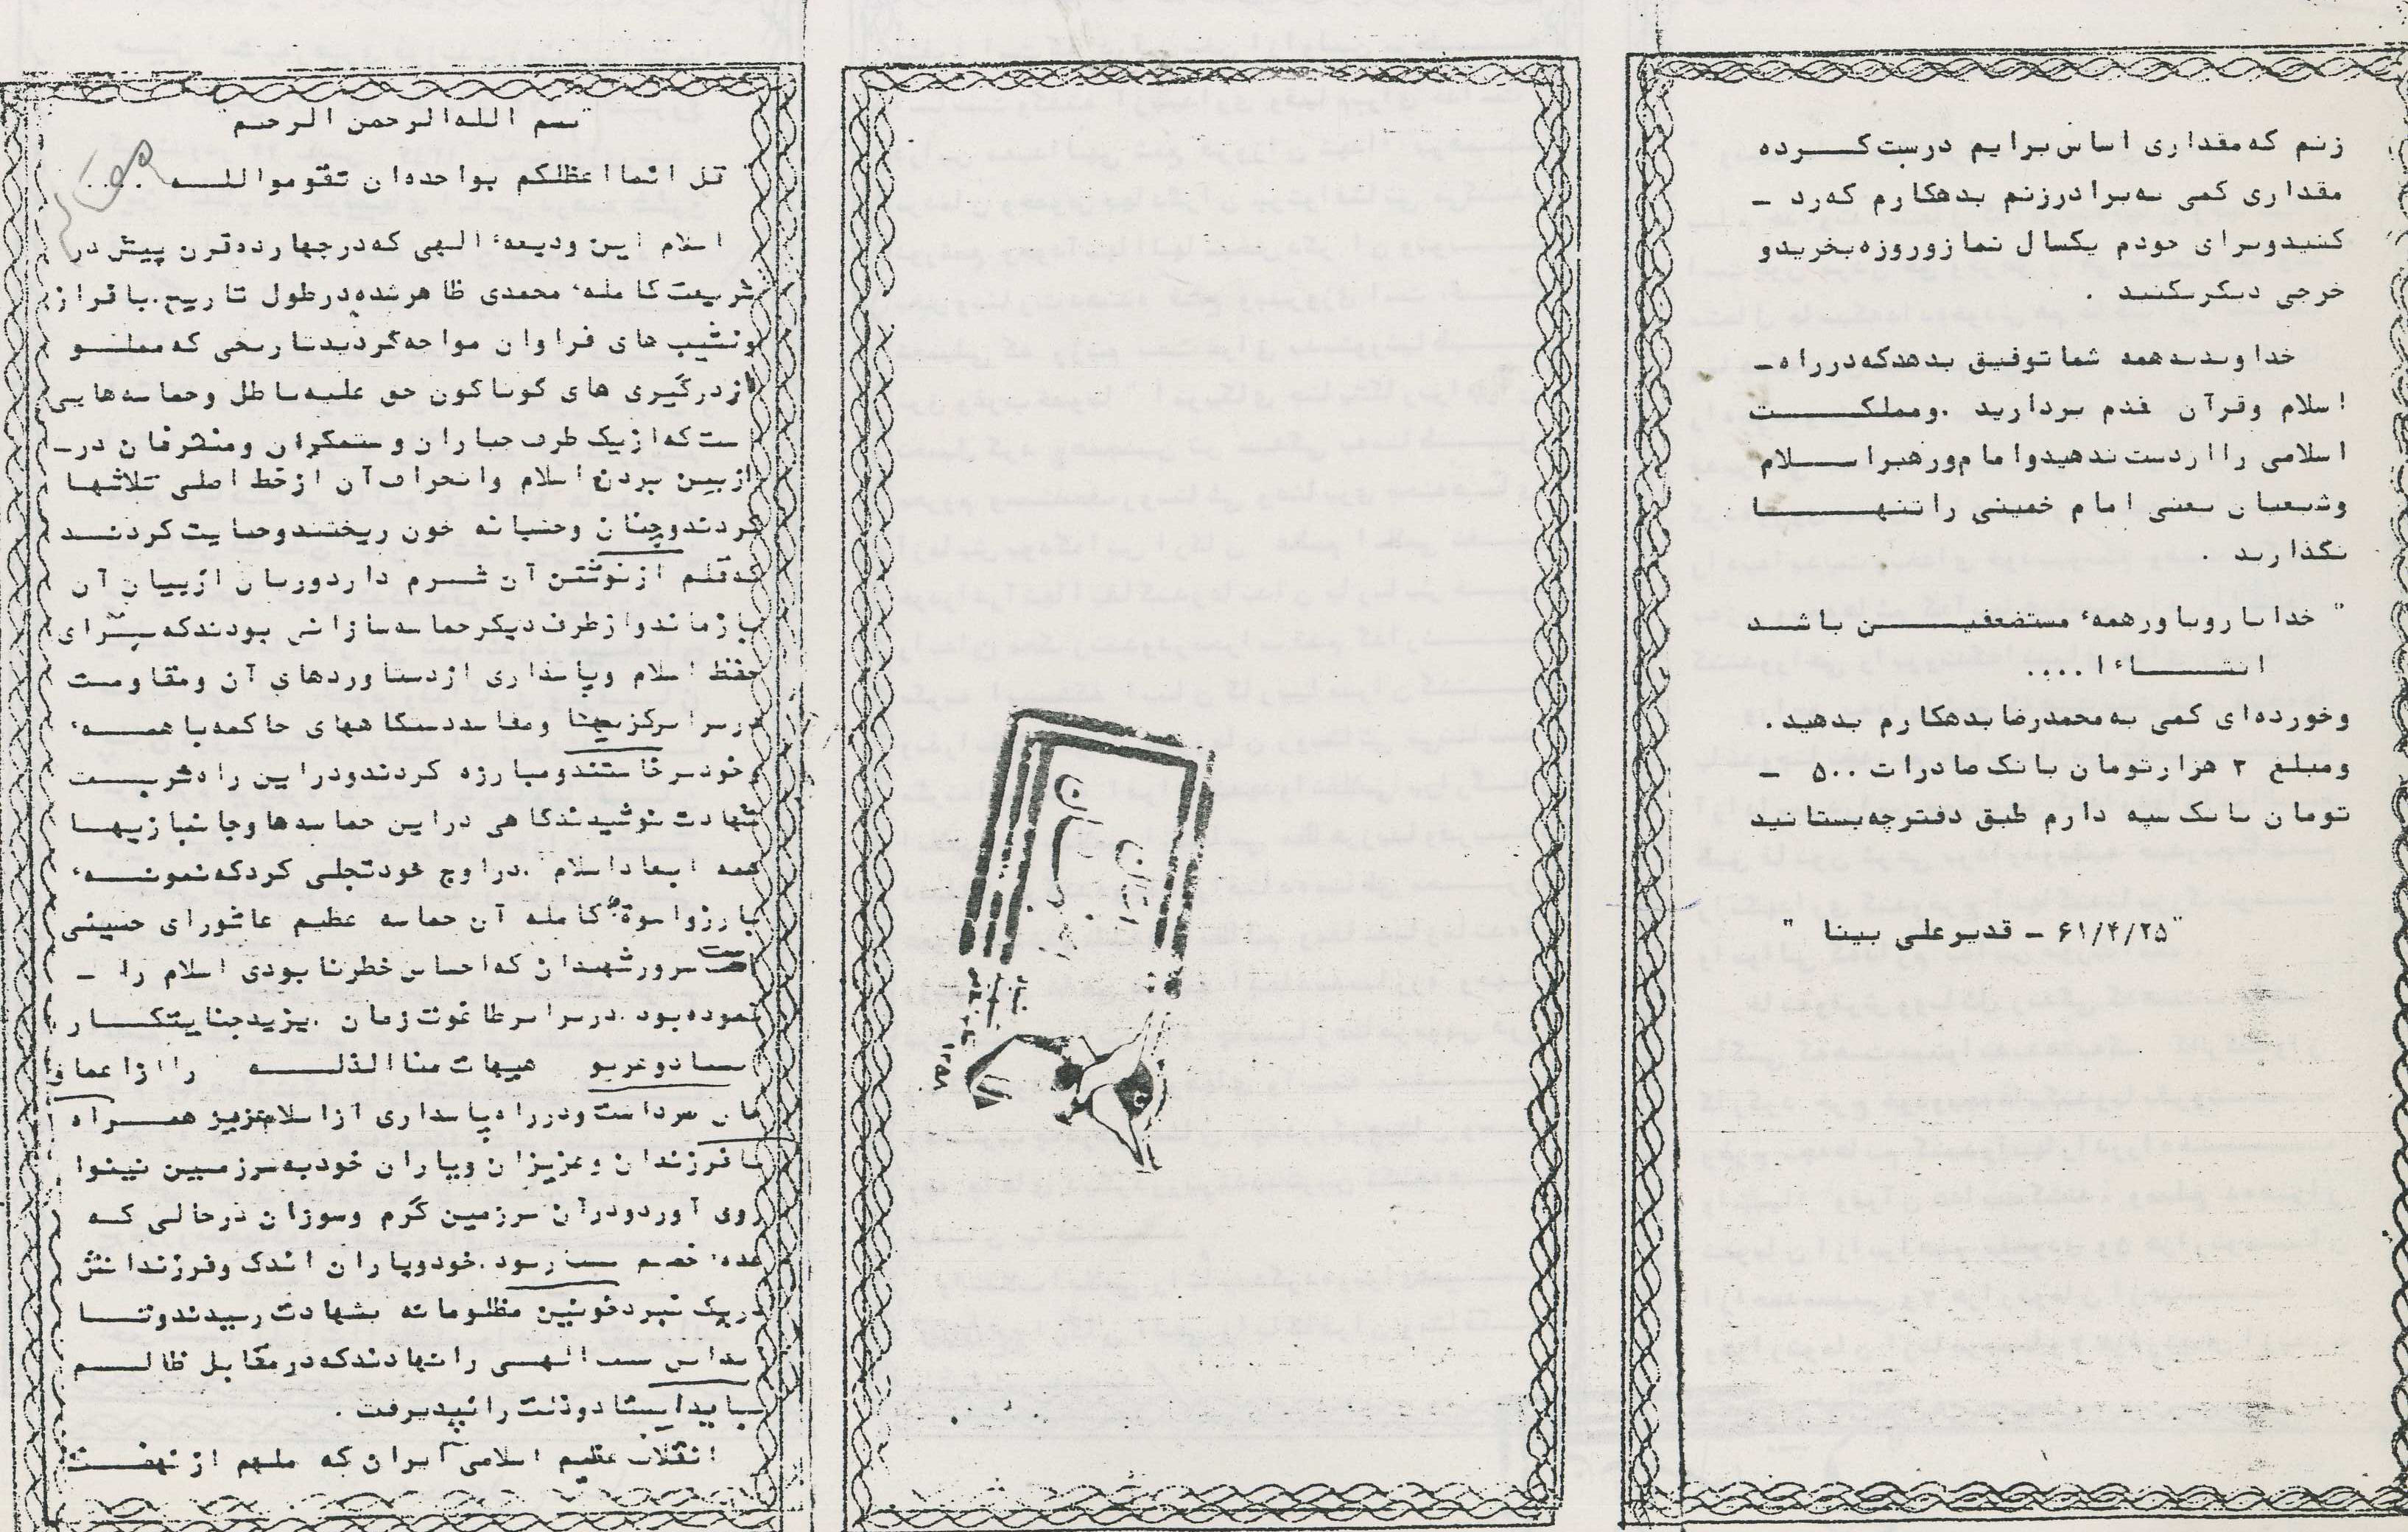 زنم که مقداری اساس برایم درست کرده
مقداری کمی به برادرزنم بدهکارم که رد -
کنید و برای خودم یکسال نماز و روزه بخرید و
خرجی دیگر نکنید .
خداوند به همه شما توفیق بدهد که در راه -
اسلام و قرآن قدم بردارید . و مملکت
اسلامی را از دست ندهید و امام و رهبر اسلام
و شیعیان یعنی امام خمینی را تنها
نگذارید .
" خدا یار و یاور همهٔ مستضعفین باشد
انشاء ا ....
و خورده‌ای کمی به محمدرضا بدهکارم بدهید .
و مبلغ ۳ هزار تومان بانک صادرات ۵۰۰ -
تومان بانک سپه دارم طبق دفترچه بستانید
"۶۱/۴/۲۵ - قدیرعلی بینا "
۱۳۵۸
"بسم الله الرحمن الرحیم"
" قل انما اعظکم بواحده ان تقوموا لله ....
اسلام این ودیعهٔ الهی که در چهارده قرن پیش در
شریعت کاملهٔ محمدی ظاهر شده در طول تاریخ . با فراز
و نشیب های فراوان مواجه گردید تاریخی که مملو
از درگیری های گوناگون حق علیه باطل و حماسه هایی
ست که از یک طرف جباران و ستمگران و منحرفان در -
از بین بردن اسلام و انحراف آن از خط اصلی تلاشها
کردند و چنان وحشیانه خون ریختند و جنایت کردند
که قلم از نوشتن آن شرم دارد و زبان از بیان آن
باز ماند و از طرف دیگر حماسه سازانی بودند که برای
حفظ اسلام و پاسداری از دستاوردهای آن و مقاومت
در برابر کژیها و مفاسد دستگاههای حاکمه با همهٔ
وجود برخاستند و مبارزه کردند و در این راه شربت
شهادت نوشیدند گاهی در این حماسه ها و جانبازیها
همه ابعاد اسلام . در اوج خود تجلی کرد که نمونهٔ
بارز و اسوة کامله آن حماسه عظیم عاشورای حسینی
است سرور شهیدان که احساس خطر نابودی اسلام را -
نموده بود . در برابر طاغوت زمان . یزید جنایتکار
هیهات منا الذله را از اعماق
سرداست و در راه پاسداری از اسلام عزیز همراه
با فرزندان و عزیزان و یاران خود به سرزمین نینوا
روی آورد و در آن سرزمین گرم و سوزان در حالی که
عدهٔ خصم بود . خود و یاران اندک و فرزندانش
در یک نبرد خونین مظلومانه بشهادت رسیدند و
الهی را نهادند که در مقابل ظالم
باید ایستاد و ذلت را نپذیرفت .
انقلاب عظیم اسلامی ایران که ملهم از نهضت